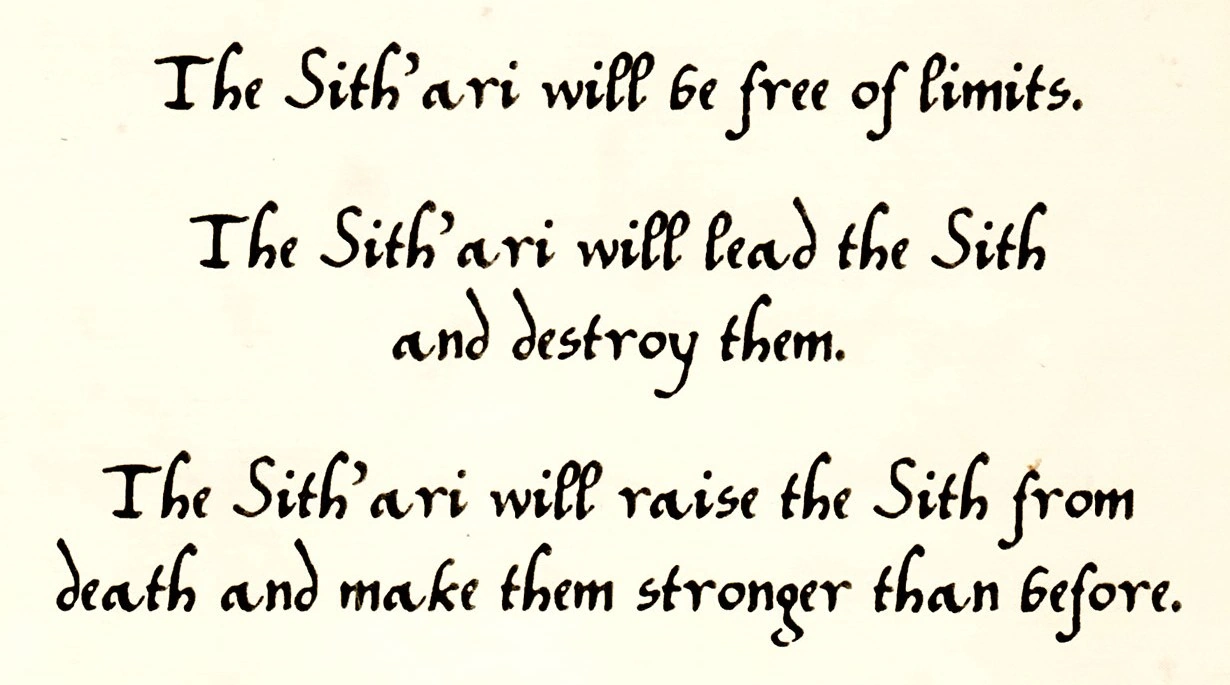 The Sith'ari will be free of limits.
The Sith'ari will lead the Sith
and destroy them.
The Sith'ari will raise the Sith from
death and make them stronger than before.